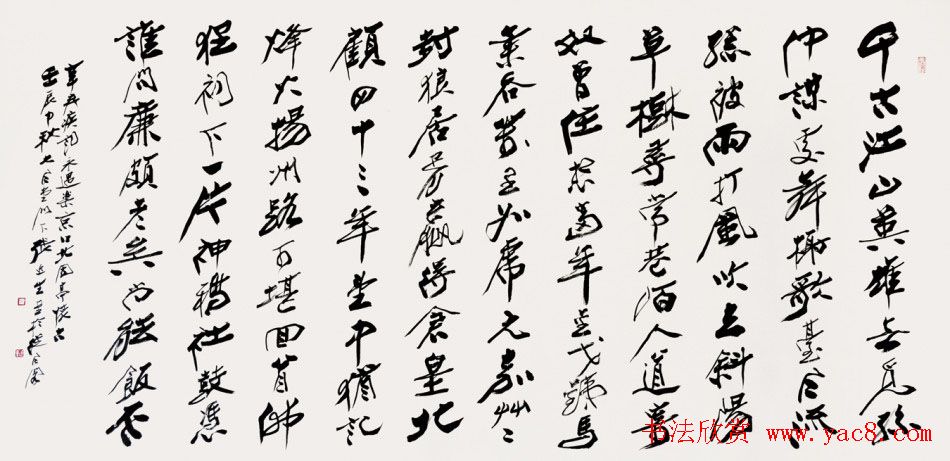 千古江山英雄無覓孫
仲謀處舞榭歌臺風流
總被雨打風吹去斜陽
草樹尋常巷陌人道寄
奴曾住想當年金戈鐵馬
氣吞萬里如虎元嘉草草
封狼居胥贏得倉皇北
顧四十三年望中猶記
烽火揚州路可堪回首佛
狸祠下一片神鴉社鼓憑
誰問廉頗老矣尚能飯否
辛棄疾詞永遇樂京口北固亭懷古
壬辰中秋
书法欣赏 www.yac8.com